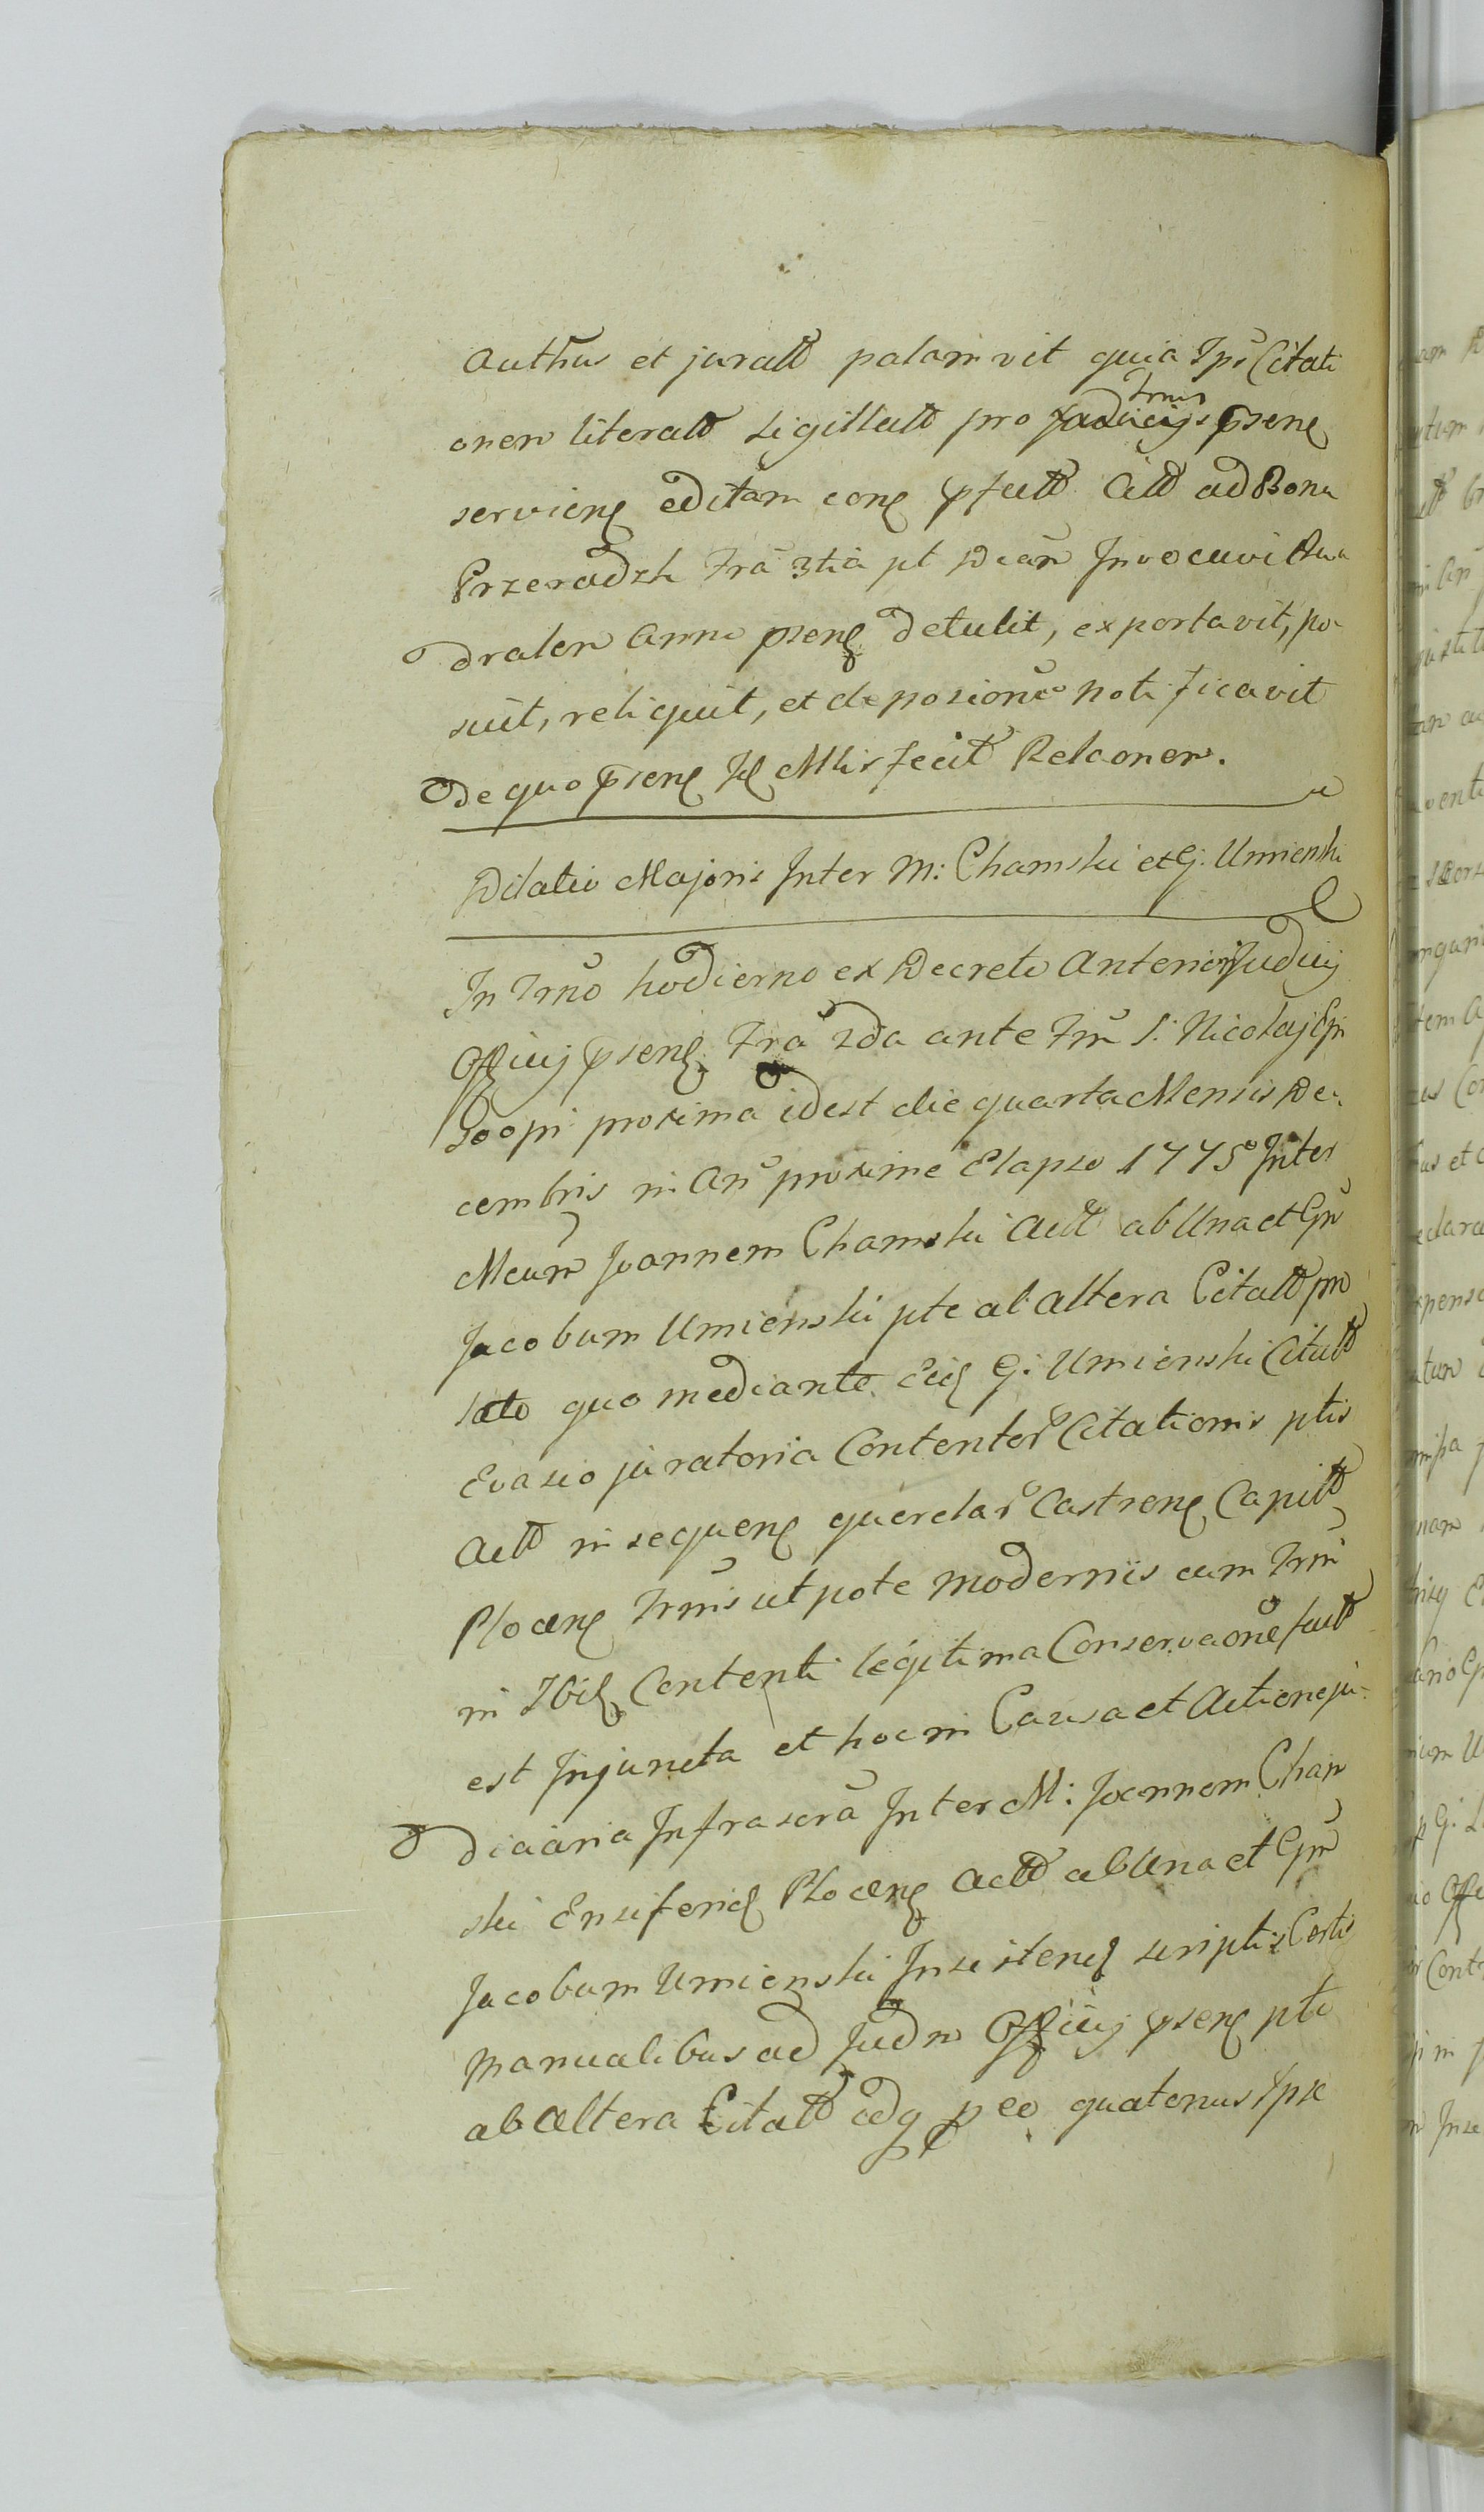 Authus et juratt palam vit quia Ips Citati
onem literatt sigillatt pro Judicijs Trmis psene
serviens editam cone pfatt Citt ad Bona
Przeradzk Fra 3tia pt Dicam Invocavit Qua
dralem Anni psens detulit, exportavit, po-
suit, reliquit, et deposione notificavit
de quo psens Id Mlis fecit Relaonem.
Dilatio Majoris Inter M: Chamski et G: Umienski
In Trno hodierno ex Decreto Anterior Judicij
Officij psens Fra 2da ante Fm S: Nicolaj Epi
proxima idest die quarta Mensis De-
cembris in Ano proxime Elapso 1775 Inter
Mcum Joannem Chamski Actt ab Una et Gm
Jacobum Umienski pte ab altera Citatt pro
lato quo mediante Eid G: Umienski Citatt
Evasio juratoria Contentor Citationis ptis
Actt in sequens querelar Castrens Capitt
Plocens Trmis ut pote modernis cum Trmi
in Ibid Contenti legitima Conservaone fatt
est Injuncta et hoc in Causa et Actione ju-
diciaria Infrascra Inter M: Joannem Cham
ski Ensiferid Plocens Actt ab Una et Gm
Jacobum Umienski Insistend scriptis Certis
manualibus ad Judm Officij psens pte
ab altera Citatt idq peo quatenus Ipse